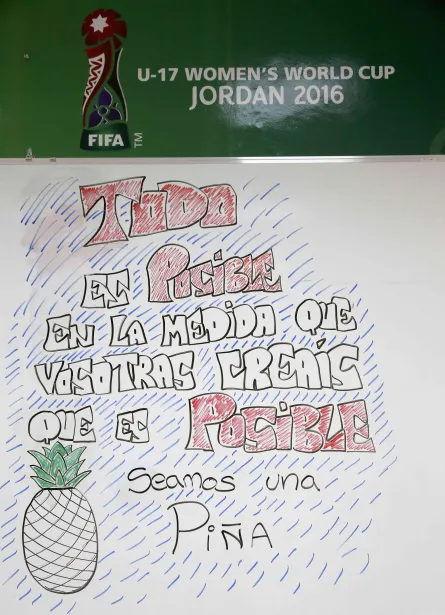 U-17 WOMEN'S WORLD CUP
JORDAN 2016
FIFA TM
TODO
ES POSIBLE
EN LA MEDIDA QUE
VOSOTRAS CREAÍS
QUE ES POSIBLE
Seamos una
PIÑA